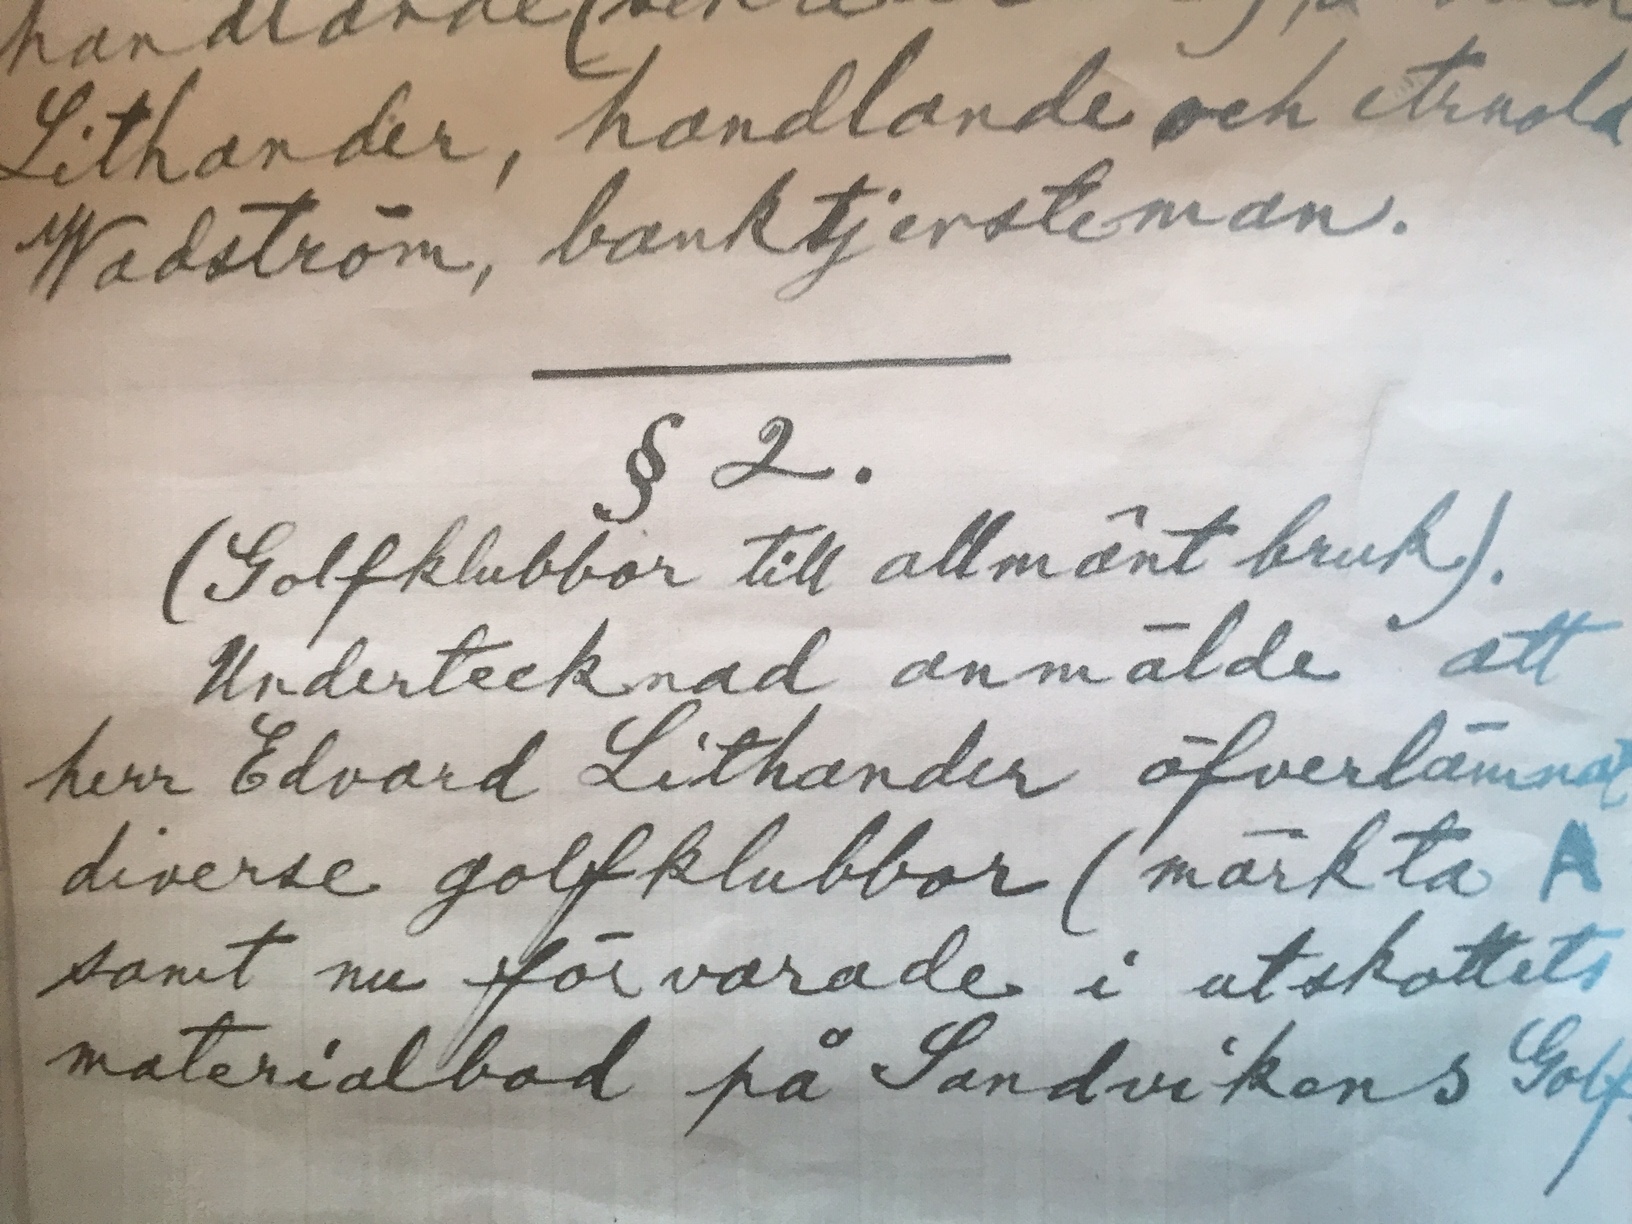 handlande
Lithander, handlande och Arnold
Wadström, banktjensteman.
§ 2.
(Golfklubbor till allmänt bruk).
Undertecknad anmälde att
herr Edvard Lithander öfverlämnat
diverse golfklubbor (märkta A
samt nu förvarade i utskottets
materialbod på Sandvikens Golf